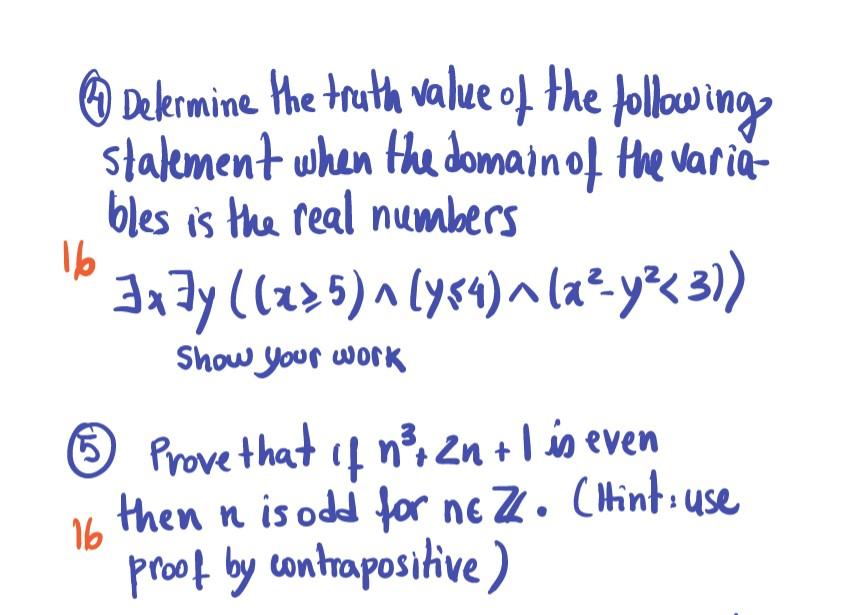 ④ Determine the truth value of the following
statement when the domain of the varia-
bles is the real numbers
16
∃x∃y ((x≥5)∧(y≤4)∧(x²-y²<3))
Show your work
⑤ Prove that if n³+2n+1 is even
then n is odd for n∈ℤ. (Hint: use
16
proof by contrapositive)